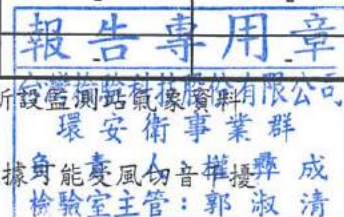 報告專用章
所設監測站氣象資料
檢驗科技股份有限公司
環安衛事業群
據可能受風切音干擾
負責人：權彝成
檢驗室主管：郭淑清